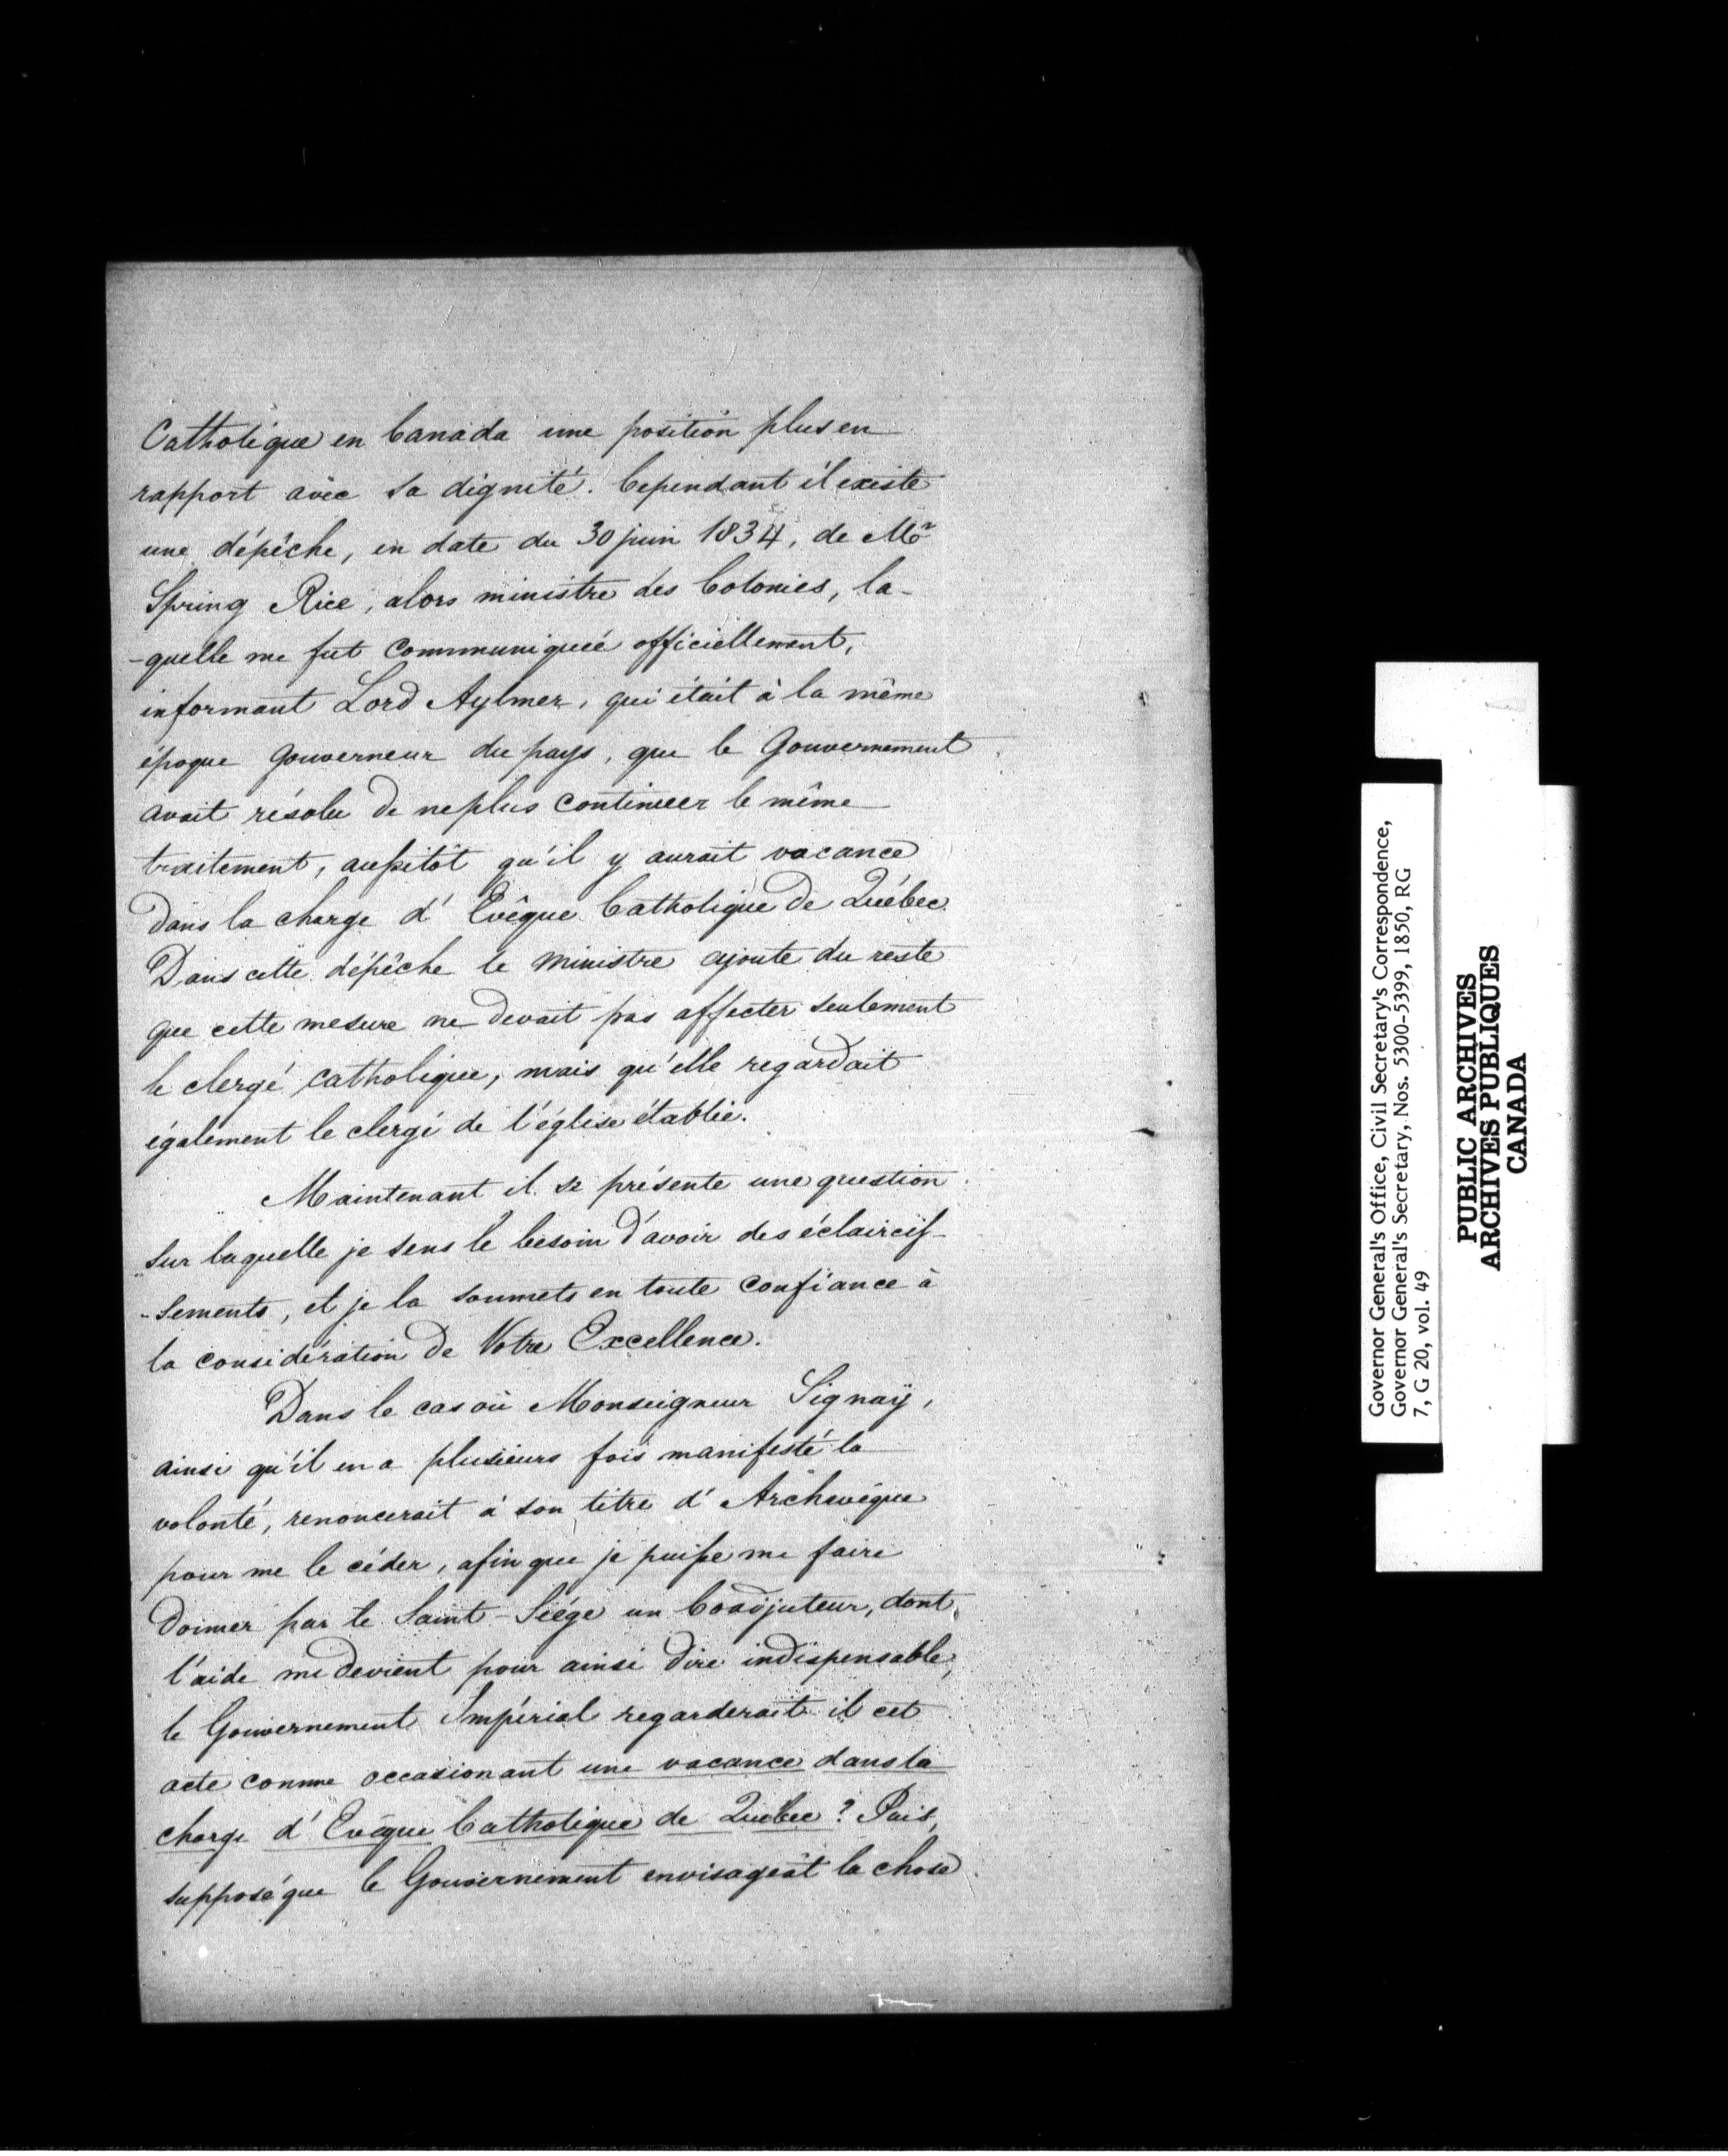 Catholique en Canada une position plus en
rapport avec sa dignité. Cependant il existe
une dépêche, en date du 30 juin 1834, de Mr
Spring Rice, alors ministre des Colonies, la-
-quelle me fut communiquée officiellement,
informant Lord Aylmer, qui était à la même
époque Gouverneur du pays, que le Gouvernement
avait résolu de ne plus continuer le même
traitement, aussitôt qu'il y aurait vacance
dans la charge d'Evêque Catholique de Québec.
Dans cette dépêche le ministre ajoute du reste
que cette mesure ne devait pas affecter seulement
le clergé catholique, mais qu'elle regardait
également le clergé de l'église établie.
Maintenant il se présente une question
sur laquelle je sens le besoin d'avoir des éclaircis-
-sements, et je la soumets en toute confiance à
la considération de Votre Excellence.
Dans le cas où Monseigneur Signaÿ,
ainsi qu'il en a plusieurs fois manifesté la
volonté, renoncerait à son titre d'Archevêque
pour me le céder, afin que je puisse me faire
donner par le Saint-Siége un Coadjuteur, dont
l'aide me devient pour ainsi dire indispensable,
le Gouvernement Impérial regarderait il cet
acte comme occasionant une vacance dans la
charge d'Evêque Catholique de Québec? Puis,
supposé que le Gouvernement envisageât la chose
Governor General's Office, Civil Secretary's Correspondence,
Governor General's Secretary, Nos. 5300-5399, 1850, RG
7, G 20, vol. 49
PUBLIC ARCHIVES
ARCHIVES PUBLIQUES
CANADA